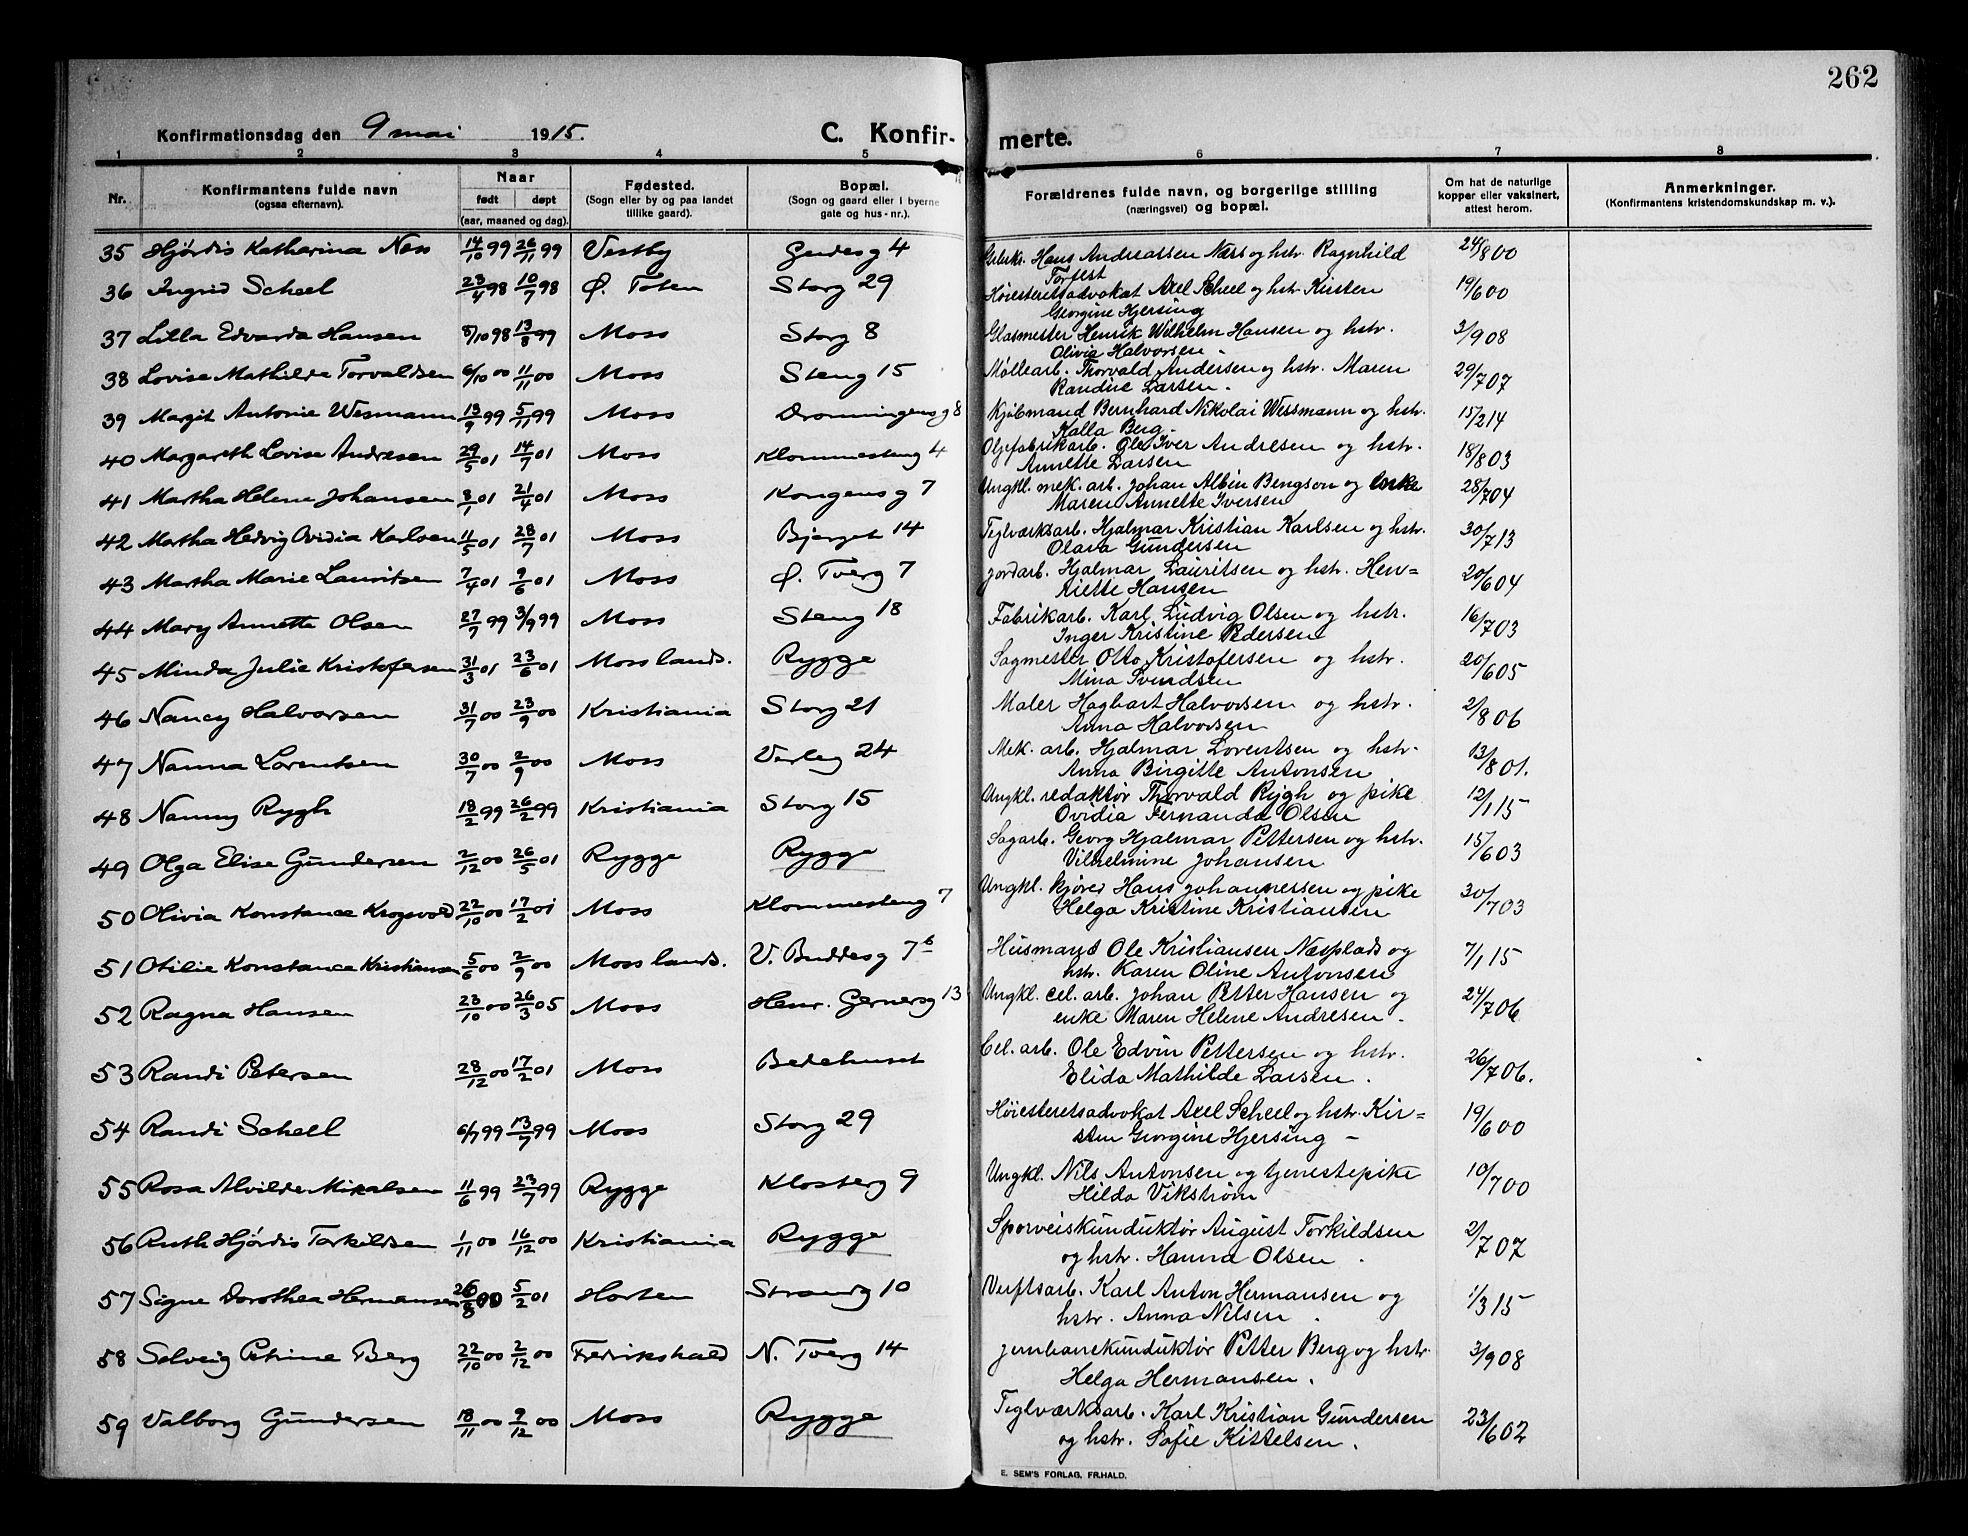 262
Konfirmationsdag den 9 mai 1915. C. Konfir- merte.
1 2 3 4 5 6 7 8
Nr.
Konfirmantens fulde navn
(ogsaa efternavn).
Naar
født døpt
(aar, maaned og dag).
Fødested.
(Sogn eller by og paa landet
tillike gaard).
Bopæl.
(Sogn og gaard eller i byerne
gate og hus-nr.).
Forældrenes fulde navn, og borgerlige stilling
(næringsvei) og bopæl.
Om hat de naturlige
kopper eller vaksinert,
attest herom.
Anmerkninger.
(Konfirmantens kristendomskundskap m. v.).
35 Hjørdis Katharina Næss 14/10 99 26/11 99 Vestby Gudesg 4 Hans Andreassen Næss og hstr. Ragnhild 24/8 00
Torfest
36 Ingrid Scheel 23/4 98 10/7 98 Ø. Toten Storg 29 Høiesteretsadvokat Axel Scheel og hstr. Kirsten 19/6 00
Georgine Hjersing
37 Lilla Edvarda Hansen 8/10 98 13/8 99 Moss Storg 8 Glasmester Henrik Wilhelm Hansen og hstr. 3/9 08
Olivia Halvorsen
38 Lovise Mathilde Torvaldsen 6/10 00 11/11 00 Moss Steng 15 Møllearb. Thorvald Andersen og hstr. Maren 29/7 07
Randine Larsen.
39 Margit Antonie Wesmann 13/9 99 5/11 99 Moss Dronningensg 8 Kjøbmand Bernhard Nikolai Wessmann og hstr. 15/2 14
Kalla Berg.
40 Margareth Lovise Andresen 29/5 01 14/7 01 Moss Klommesteng 4 Oljefabrikarb. Ole Iver Andresen og hstr. 18/8 03
Annette Larsen
41 Martha Helene Johansen 8/1 01 21/4 01 Moss Kongensg 7 Ungkl. mek. arb. Johan Albin Bengson og enke 28/7 04
Maren Annette Iversen
42 Martha Hedvig Ovidia Karlsen 11/5 01 28/7 01 Moss Bjerget 14 Teglværksarb. Hjalmar Kristian Karlsen og hstr. 30/7 13
Olava Gundersen
43 Martha Marie Lauritsen 7/4 01 9/6 01 Moss Ø. Tverg 7 Jordarb. Hjalmar Lauritsen og hstr. Hen=
riette Hansen 20/6 04
44 Mary Annette Olsen 27/7 99 3/9 99 Moss Steng 18 Fabrikarb. Karl Ludvig Olsen og hstr. 16/7 03
Inger Kristine Pedersen
45 Minda Julie Kristofersen 31/3 01 23/6 01 Moss lands. Rygge Sagmester Otto Kristofersen og hstr. 20/6 05
Mina Svendsen
46 Nancy Halvorsen 31/7 00 23/9 00 Kristiania Storg 21 Maler Hagbart Halvorsen og hstr. 2/8 06
Anna Halvorsen
47 Nanna Lorentsen 30/7 00 2/9 00 Moss Verleg 24 Mek. arb. Hjalmar Lorentsen og hstr. 13/8 01.
Anna Birgitte Antonsen
48 Nanny Rygh 18/2 99 26/2 99 Kristiania Storg 15 Ungkl. redaktør Thorvald Rygh og pike 12/1 15
Ovidia Fernanda Olsen
49 Olga Elise Gundersen 2/12 00 26/5 01 Rygge Rygge Sagarb. Georg Hjalmar Pettersen og hstr. 15/6 03
Vilhelmine Johansen
50 Olivia Konstance Krogsvold 22/10 00 17/2 01 Moss Klommesteng 7 Ungkl. kjører Hans Johannessen og pike 30/7 03
Helga Kristine Kristiansen
51 Otilie Konstance Kristiansen 5/6 00 2/9 00 Moss lands. V. Buddesg 7 b Husmand Ole Kristiansen Næsplads og 7/1 15
hstr. Karen Oline Antonsen
52 Ragna Hansen 23/10 00 26/3 05 Moss Henr. Gernersg 13 Ungkl. cel. arb. Johan Petter Hansen og 24/7 06
enke Maren Helene Andresen.
53 Randi Petersen 28/12 00 17/2 01 Moss Bedehuset Cel. arb. Ole Edvin Pettersen og hstr. 26/7 06.
Elida Mathilde Larsen.
54 Randi Scheel 6/7 99 13/7 99 Moss Storg 29 Høiesteretsadvokat Axel Scheel og hstr. Kir=
sten Georgine Hjersing – 19/6 00
55 Rosa Alvilde Mikalsen 11/6 99 23/7 99 Rygge Klosterg 9 Ungkl. Nils Antonsen og tjenestepike 10/7 00
Hilda Vikstrøm
56 Ruth Hjørdis Torkildsen 1/11 00 16/12 00 Kristiania Rygge Sporveiskunduktør August Torkildsen 2/7 07
og hstr. Hanna Olsen.
57 Signe Dorothea Hermansen 26/8 00 5/2 01 Horten Strandg 10 Verftsarb. Karl Anton Hermansen og 1/3 15
hstr. Anna Nilsen.
58 Solveig Petrine Berg 22/10 00 2/12 00 Fredrikshald N. Tverg 14 Jernbanekunduktør Petter Berg og hstr. 3/9 08
Helga Hermansen.
59 Valborg Gundersen 18/11 00 9/12 00 Moss Rygge Teglværksarb. Karl Kristian Gundersen 23/6 02
og hstr. Sofie Kittelsen.
E. SEM'S FORLAG, FR.HALD.